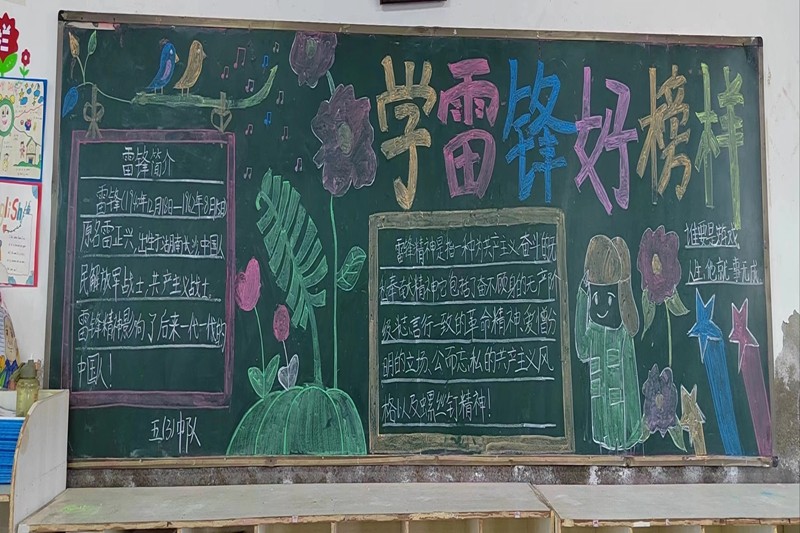 学雷锋好榜样
雷锋简介
雷锋(1940年12月18日—1962年8月15日
原名雷正兴,出生于湖南长沙,中国人
民解放军战士,共产主义战士,
雷锋精神影响了后来一代一代的
中国人!
五(3)中队
雷锋精神是指一种为共产主义奋斗的无
私奉献精神它包括了奋不顾身的无产阶
级志言行一致的革命精神、爱憎分
明的立场、公而忘私的共产主义风
格以及螺丝钉精神!
谁要是游戏
人生,他就一事无成